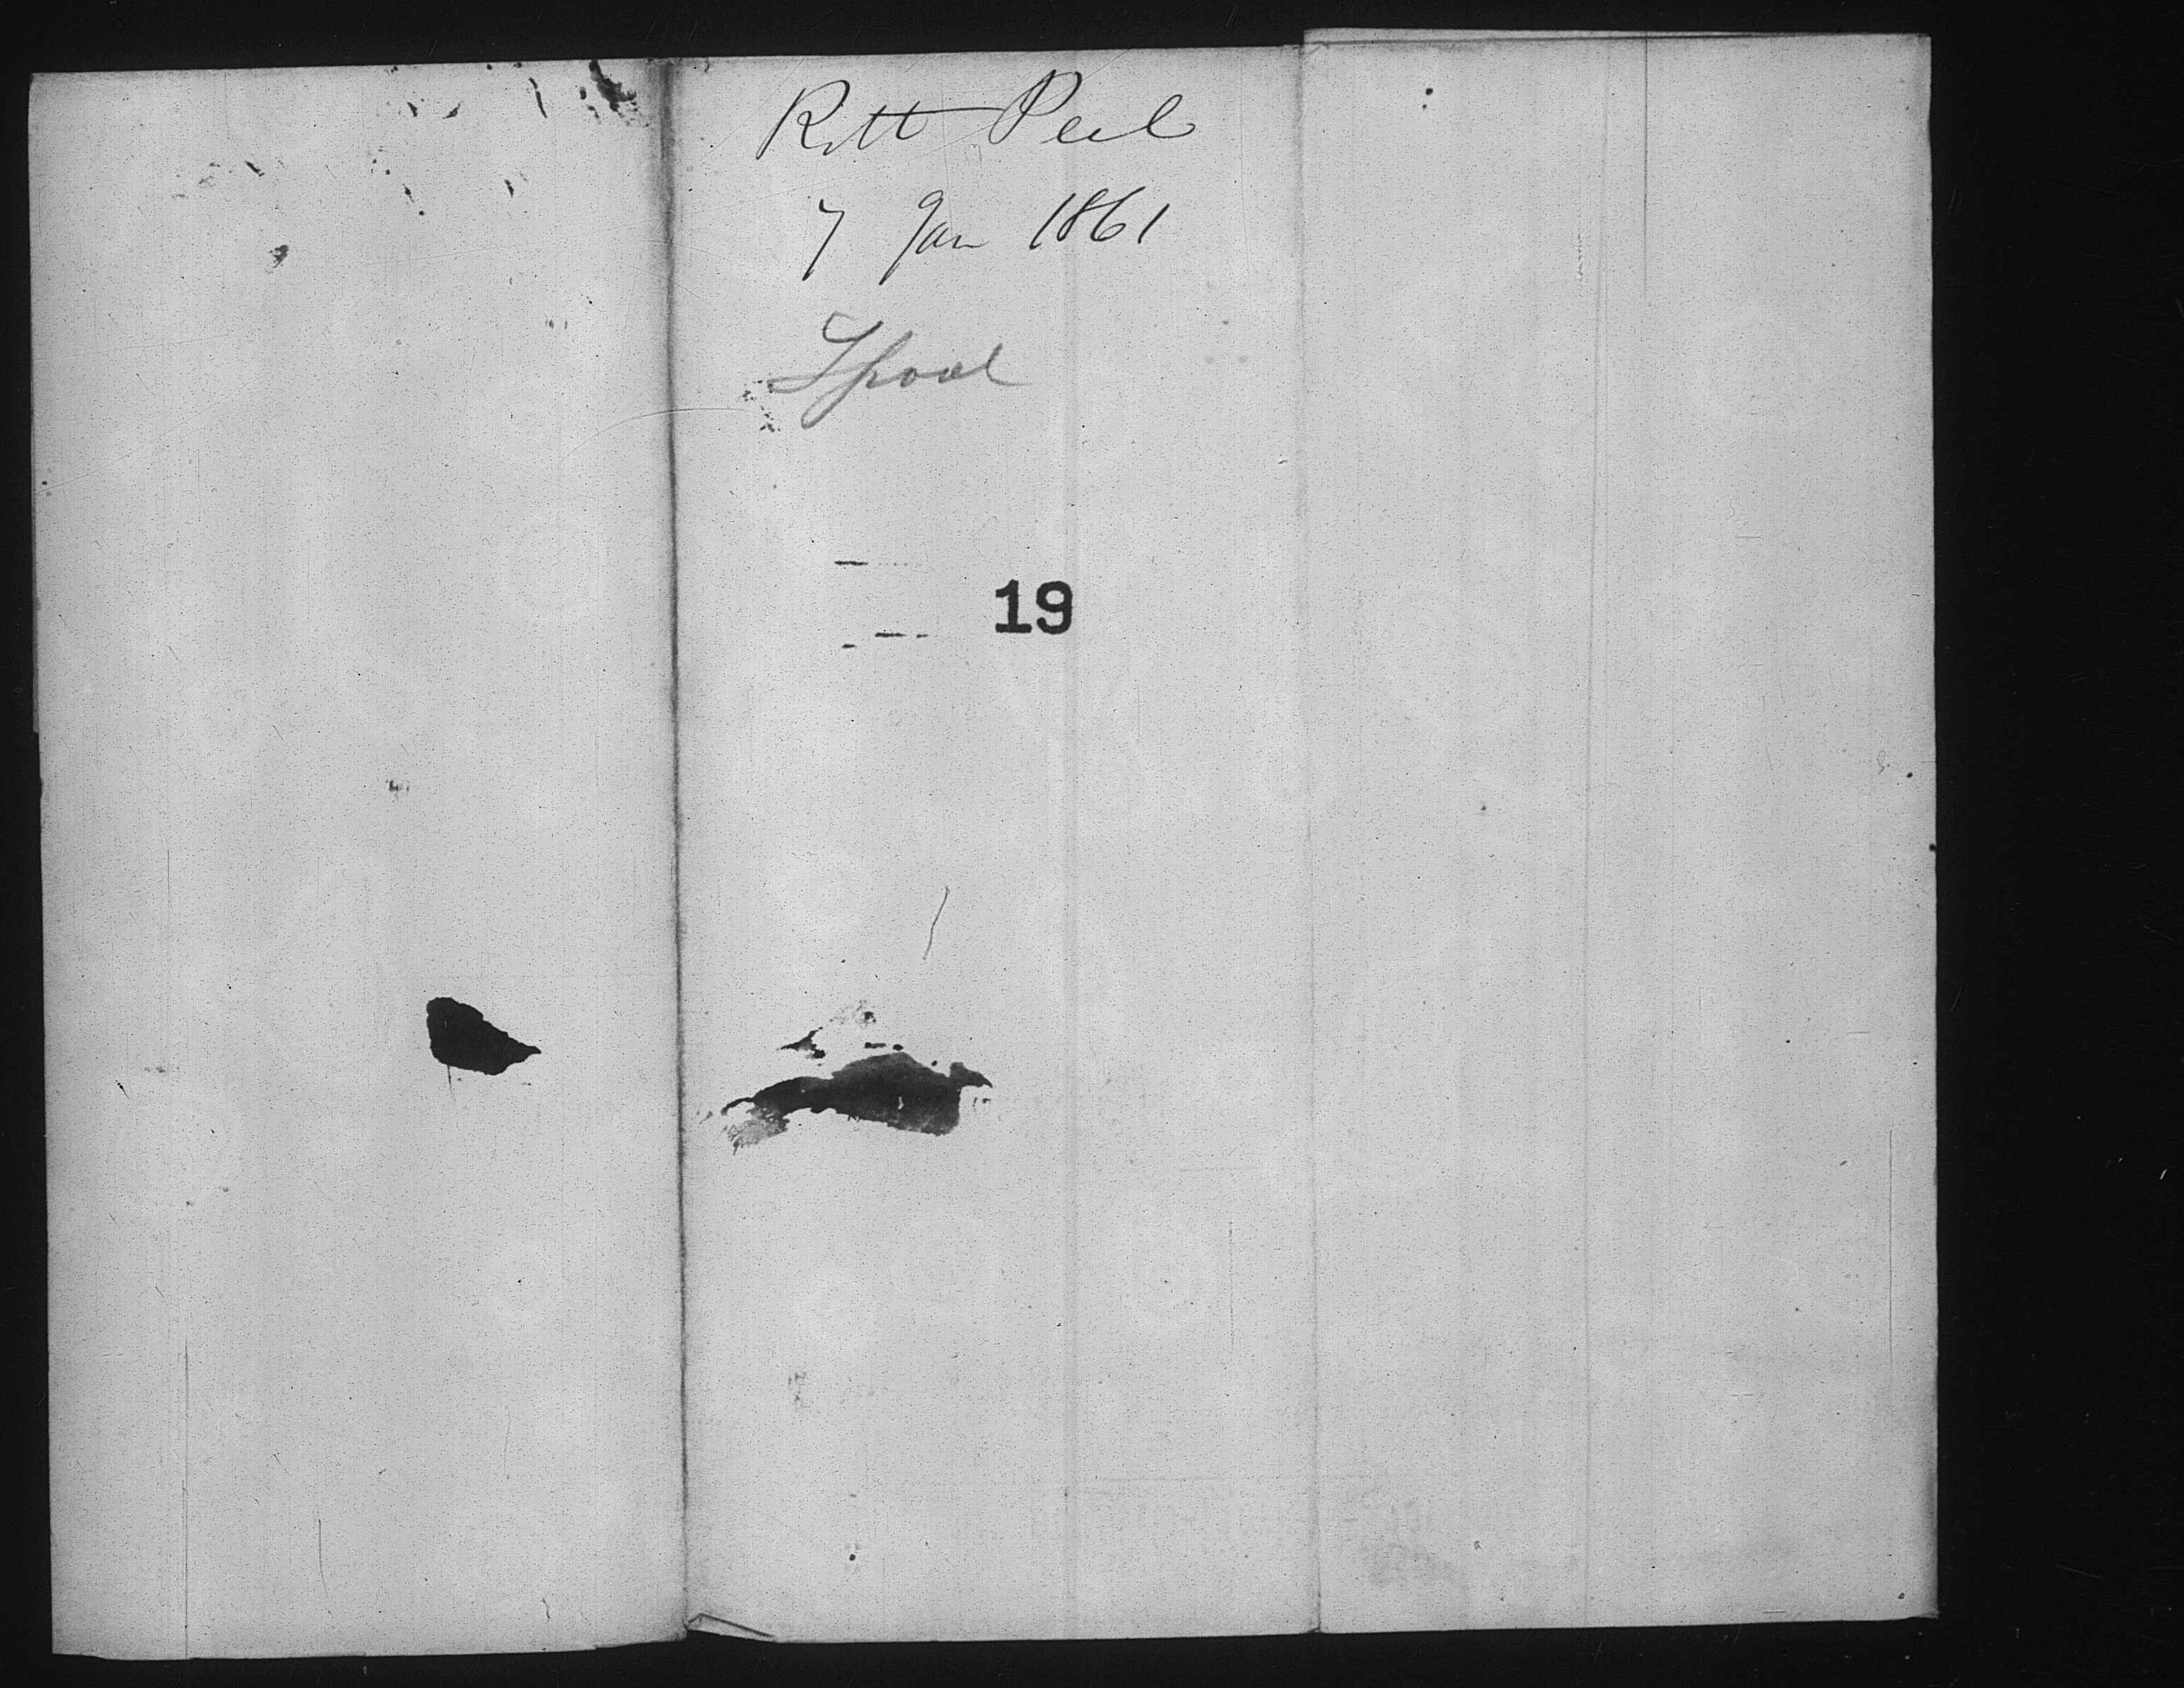 Robt Peel
7 Jan 1861
Lpool
19